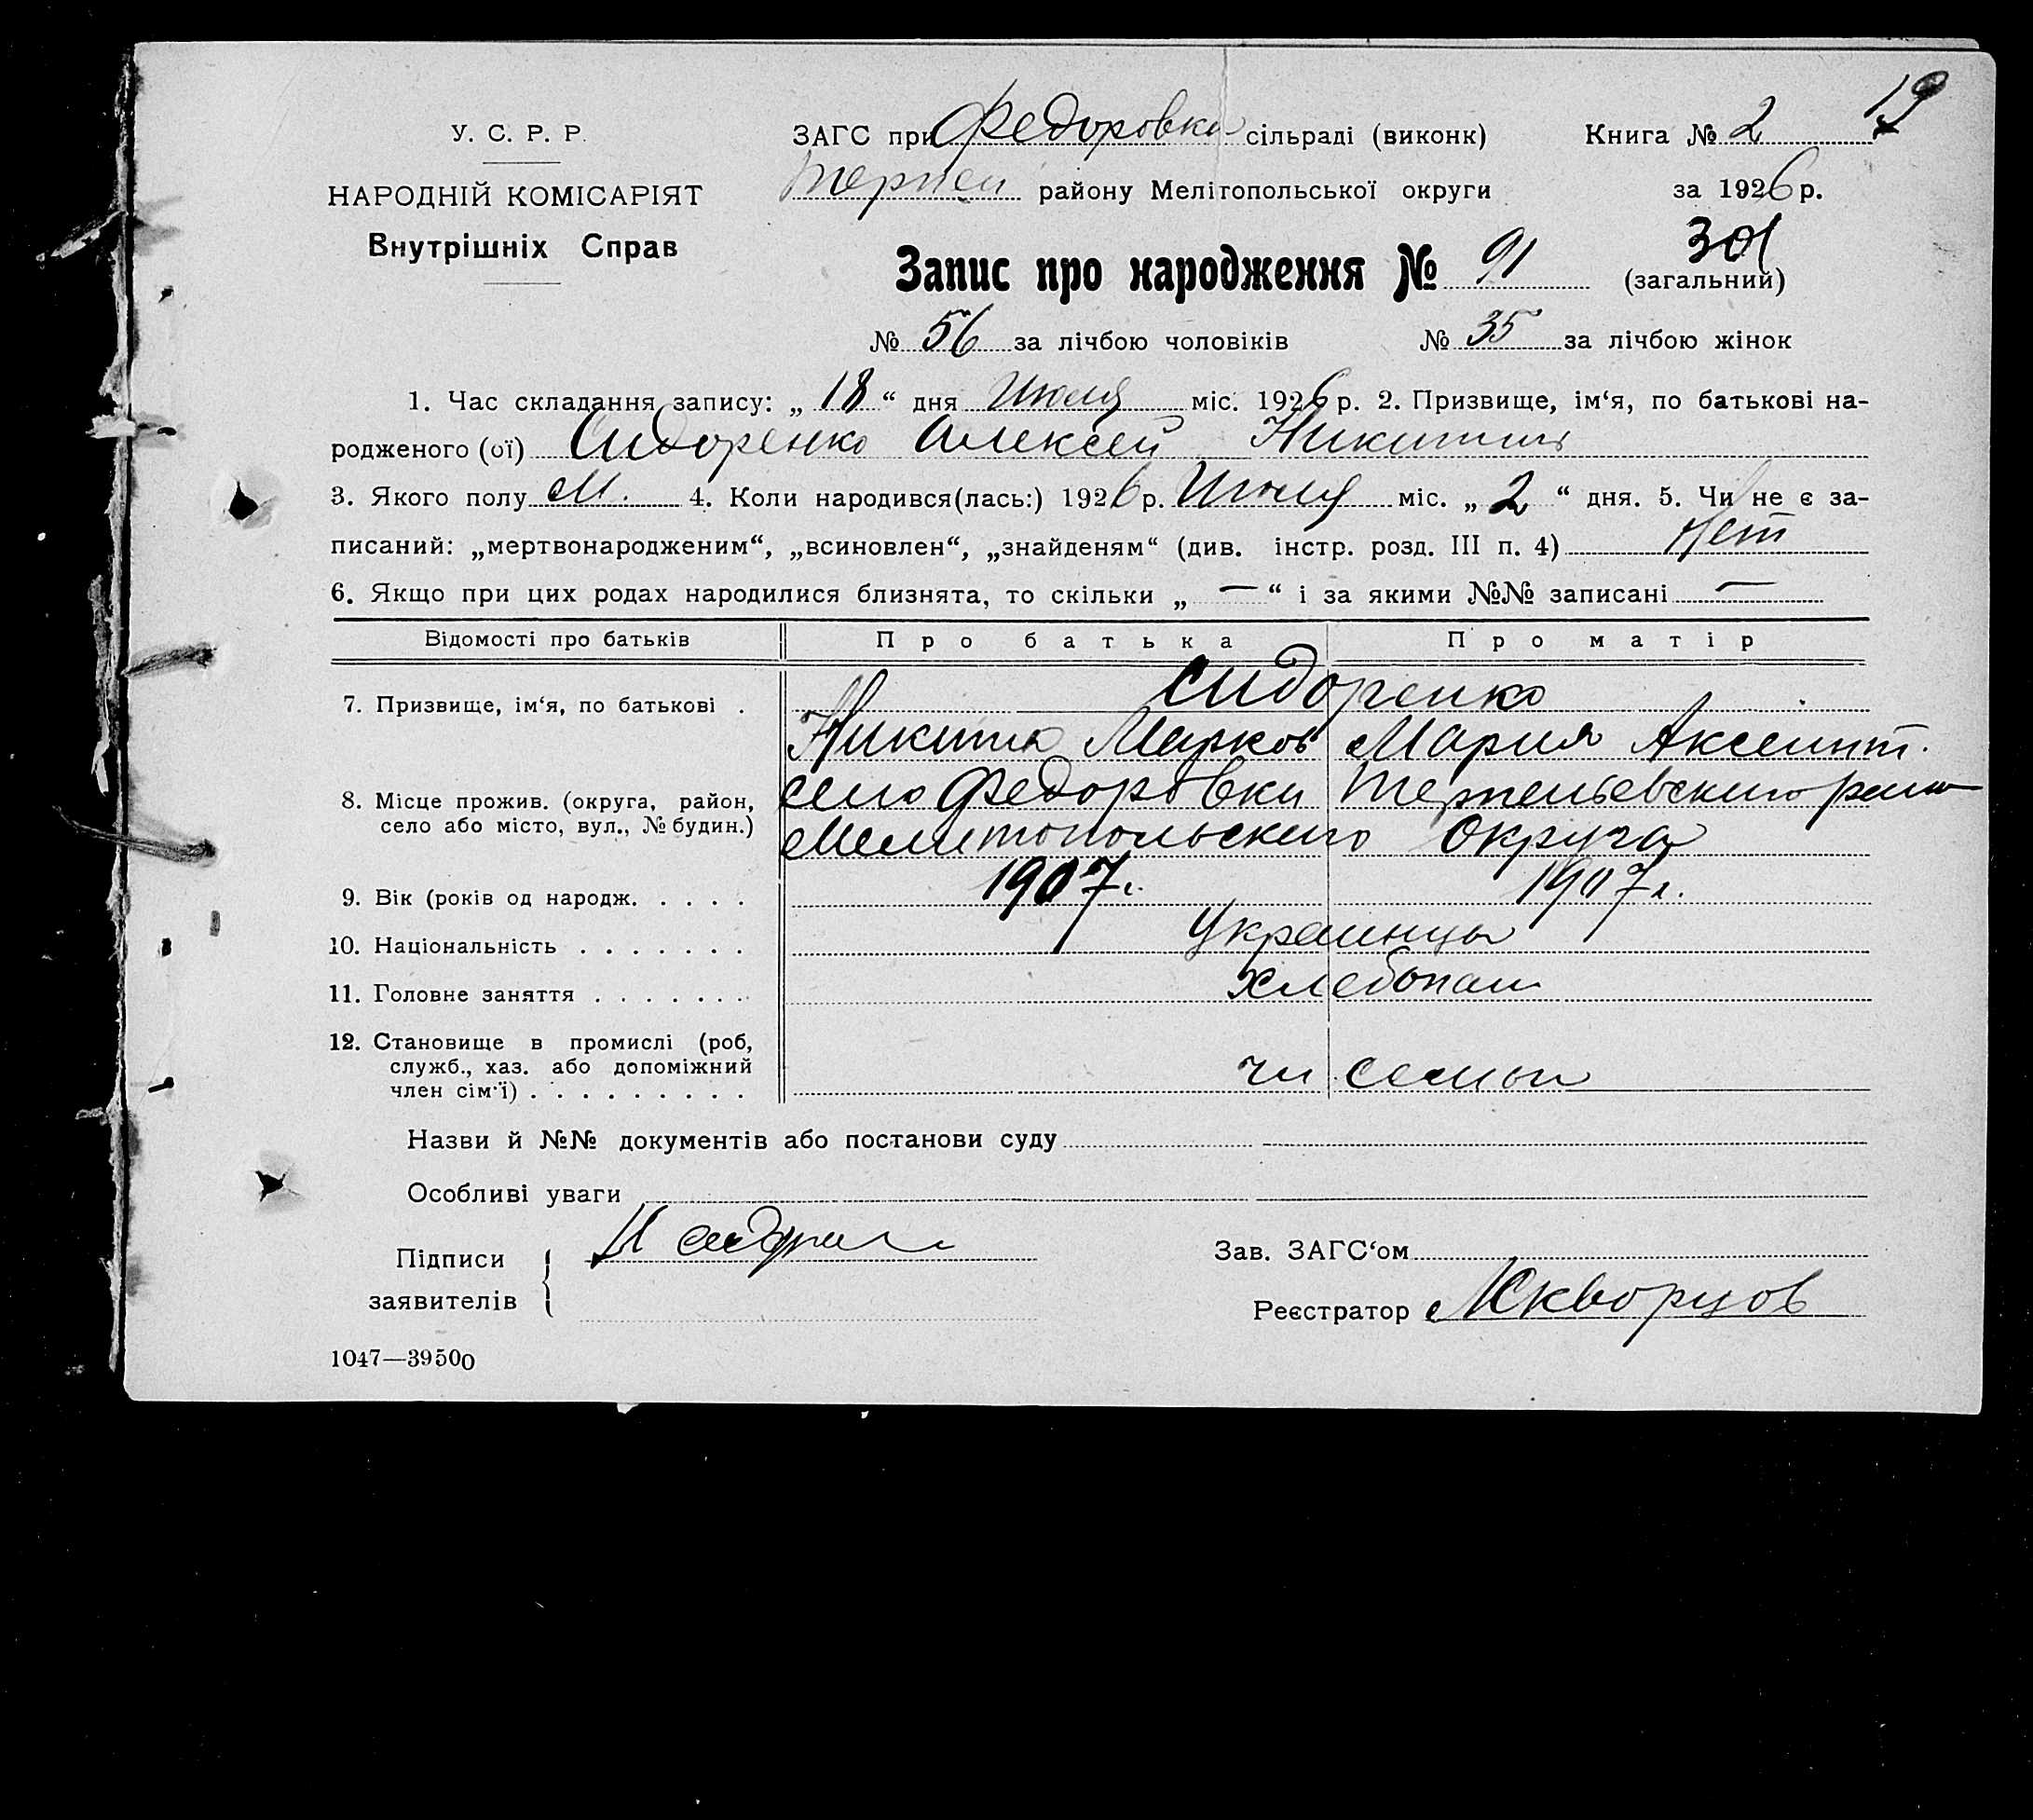 19
У. С. Р. Р.
ЗАГС при Федоровка сільраді (виконк) Книга № 2
НАРОДНІЙ КОМІСАРІЯТ
Терпен району Мелітопольської округи за 1926 р.
Внутрішніх Справ
301
Запис про народження № 91 (загальний)
№ 56 за лічбою чоловіків № 35 за лічбою жінок
1. Час складання запису: „ 18 “ дня Июля міс. 1926 р. 2. Призвище, ім‘я, по батькові на-
родженого (ої) Сидоренко Алексей Никитин
3. Якого полу М. 4. Коли народився(лась:) 1926 р. Июля міс. „ 2 “ дня. 5. Чи не є за-
писаний: „мертвонародженим“, „всиновлен“, „знайденям“ (див. інстр. розд. III п. 4) Нет
6. Якщо при цих родах народилися близнята, то скільки „ — “ і за якими №№ записані —
Відомості про батьків Про батька Про матір
7. Призвище, ім‘я, по батькові . Сидоренко
Никита Марков Мария Аксент.
8. Місце прожив. (округа, район, село Федоровки Терпеньевского район
село або місто, вул., № будин.) Мелитопольского Округа
9. Вік (років од народж. . . . . 1907 г. 1907 г.
10. Національність . . . . . . . Украинцы
11. Головне заняття . . . . . . . Хлебопаш
12. Становище в промислі (роб,
служб., хаз. або допоміжний
член сім‘ї) . . . . . . . . . чл семьи
Назви й №№ документів або постанови суду
Особливі уваги
Підписи
заявителів
Зав. ЗАГС‘ом
Реєстратор Скворцов
1047—39500